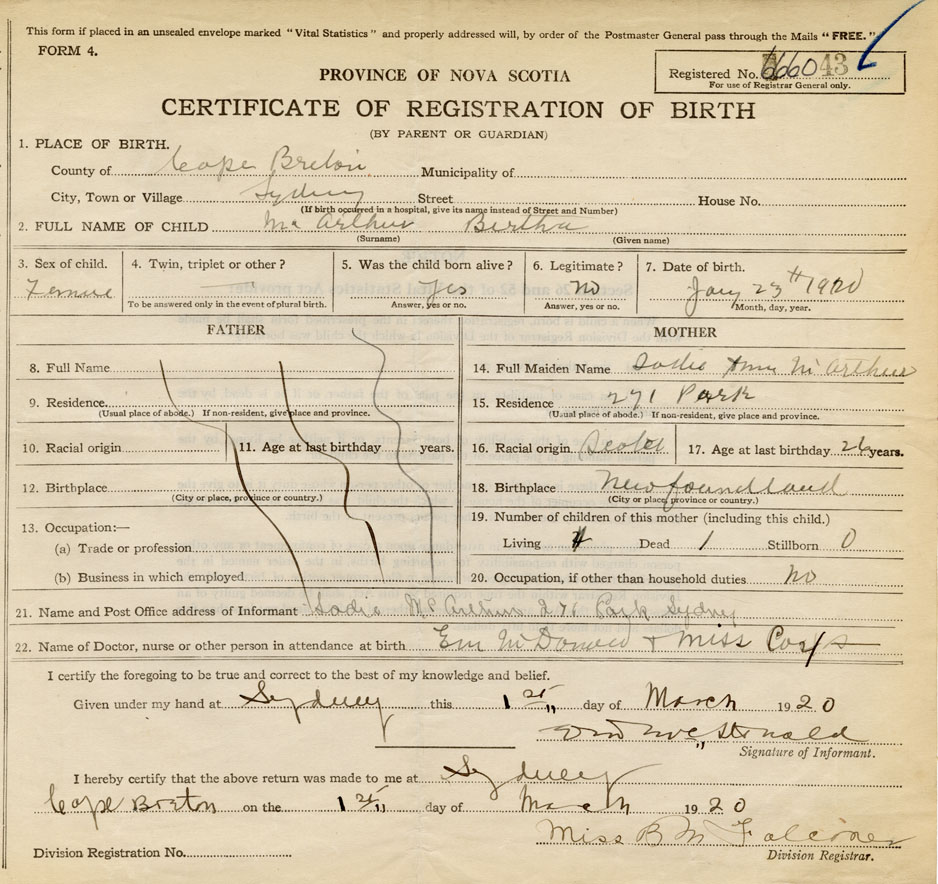 This form if placed in an unsealed envelope marked "Vital Statistics" and properly addressed will, by order of the Postmaster General pass through the Mails "FREE."
FORM 4.
PROVINCE OF NOVA SCOTIA
Registered No. 666043
For use of Registrar General only.
CERTIFICATE OF REGISTRATION OF BIRTH
(BY PARENT OR GUARDIAN)
1. PLACE OF BIRTH.
County of Cape Breton Municipality of
City, Town or Village Sydney Street House No.
(If birth occurred in a hospital, give its name instead of Street and Number)
2. FULL NAME OF CHILD McArthur Bertha
(Surname) (Given name)
3. Sex of child. 4. Twin, triplet or other? 5. Was the child born alive? 6. Legitimate? 7. Date of birth.
Female Yes no Jany 23th 1920
To be answered only in the event of plural birth. Answer, yes or no. Answer, yes or no. Month, day, year.
FATHER
8. Full Name
9. Residence
(Usual place of abode.) If non-resident, give place and province.
10. Racial origin 11. Age at last birthday years.
12. Birthplace
(City or place, province or country.)
13. Occupation:—
(a) Trade or profession
(b) Business in which employed
MOTHER
14. Full Maiden Name Sadie Ann McArthur
15. Residence 271 Park
(Usual place of abode.) If non-resident, give place and province.
16. Racial origin Scotch 17. Age at last birthday 26 years.
18. Birthplace Newfoundland
(City or place, province or country.)
19. Number of children of this mother (including this child.)
Living Dead 1 Stillborn 0
20. Occupation, if other than household duties No
21. Name and Post Office address of Informant Sadie McArthur 271 Park Sydney
22. Name of Doctor, nurse or other person in attendance at birth McDonald + Miss
I certify the foregoing to be true and correct to the best of my knowledge and belief.
Given under my hand at Sydney this 1st day of March 1920
McDonald
Signature of Informant.
I hereby certify that the above return was made to me at Sydney
Cape Breton on the 1st day of March 1920
Miss B M Falconer
Division Registration No. Division Registrar.